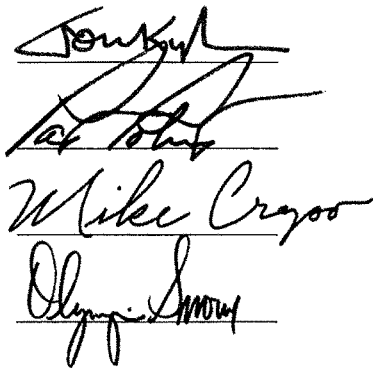 Jon Kyl
Pat Roberts
Mike Crapo
Olympia Snowe